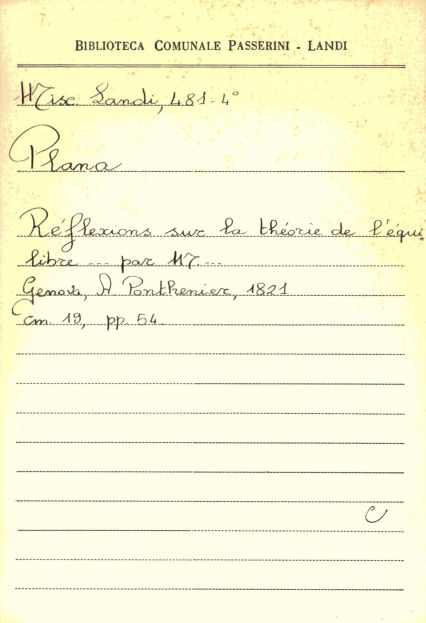 BIBLIOTECA COMUNALE PASSERINI - LANDI
Misc. Landi, 481-4°
Plana
Réflexions sur la théorie de l'équi-
libre --- par M. ---
Genova, A Ponthenier, 1821
cm. 19, pp. 54.
C